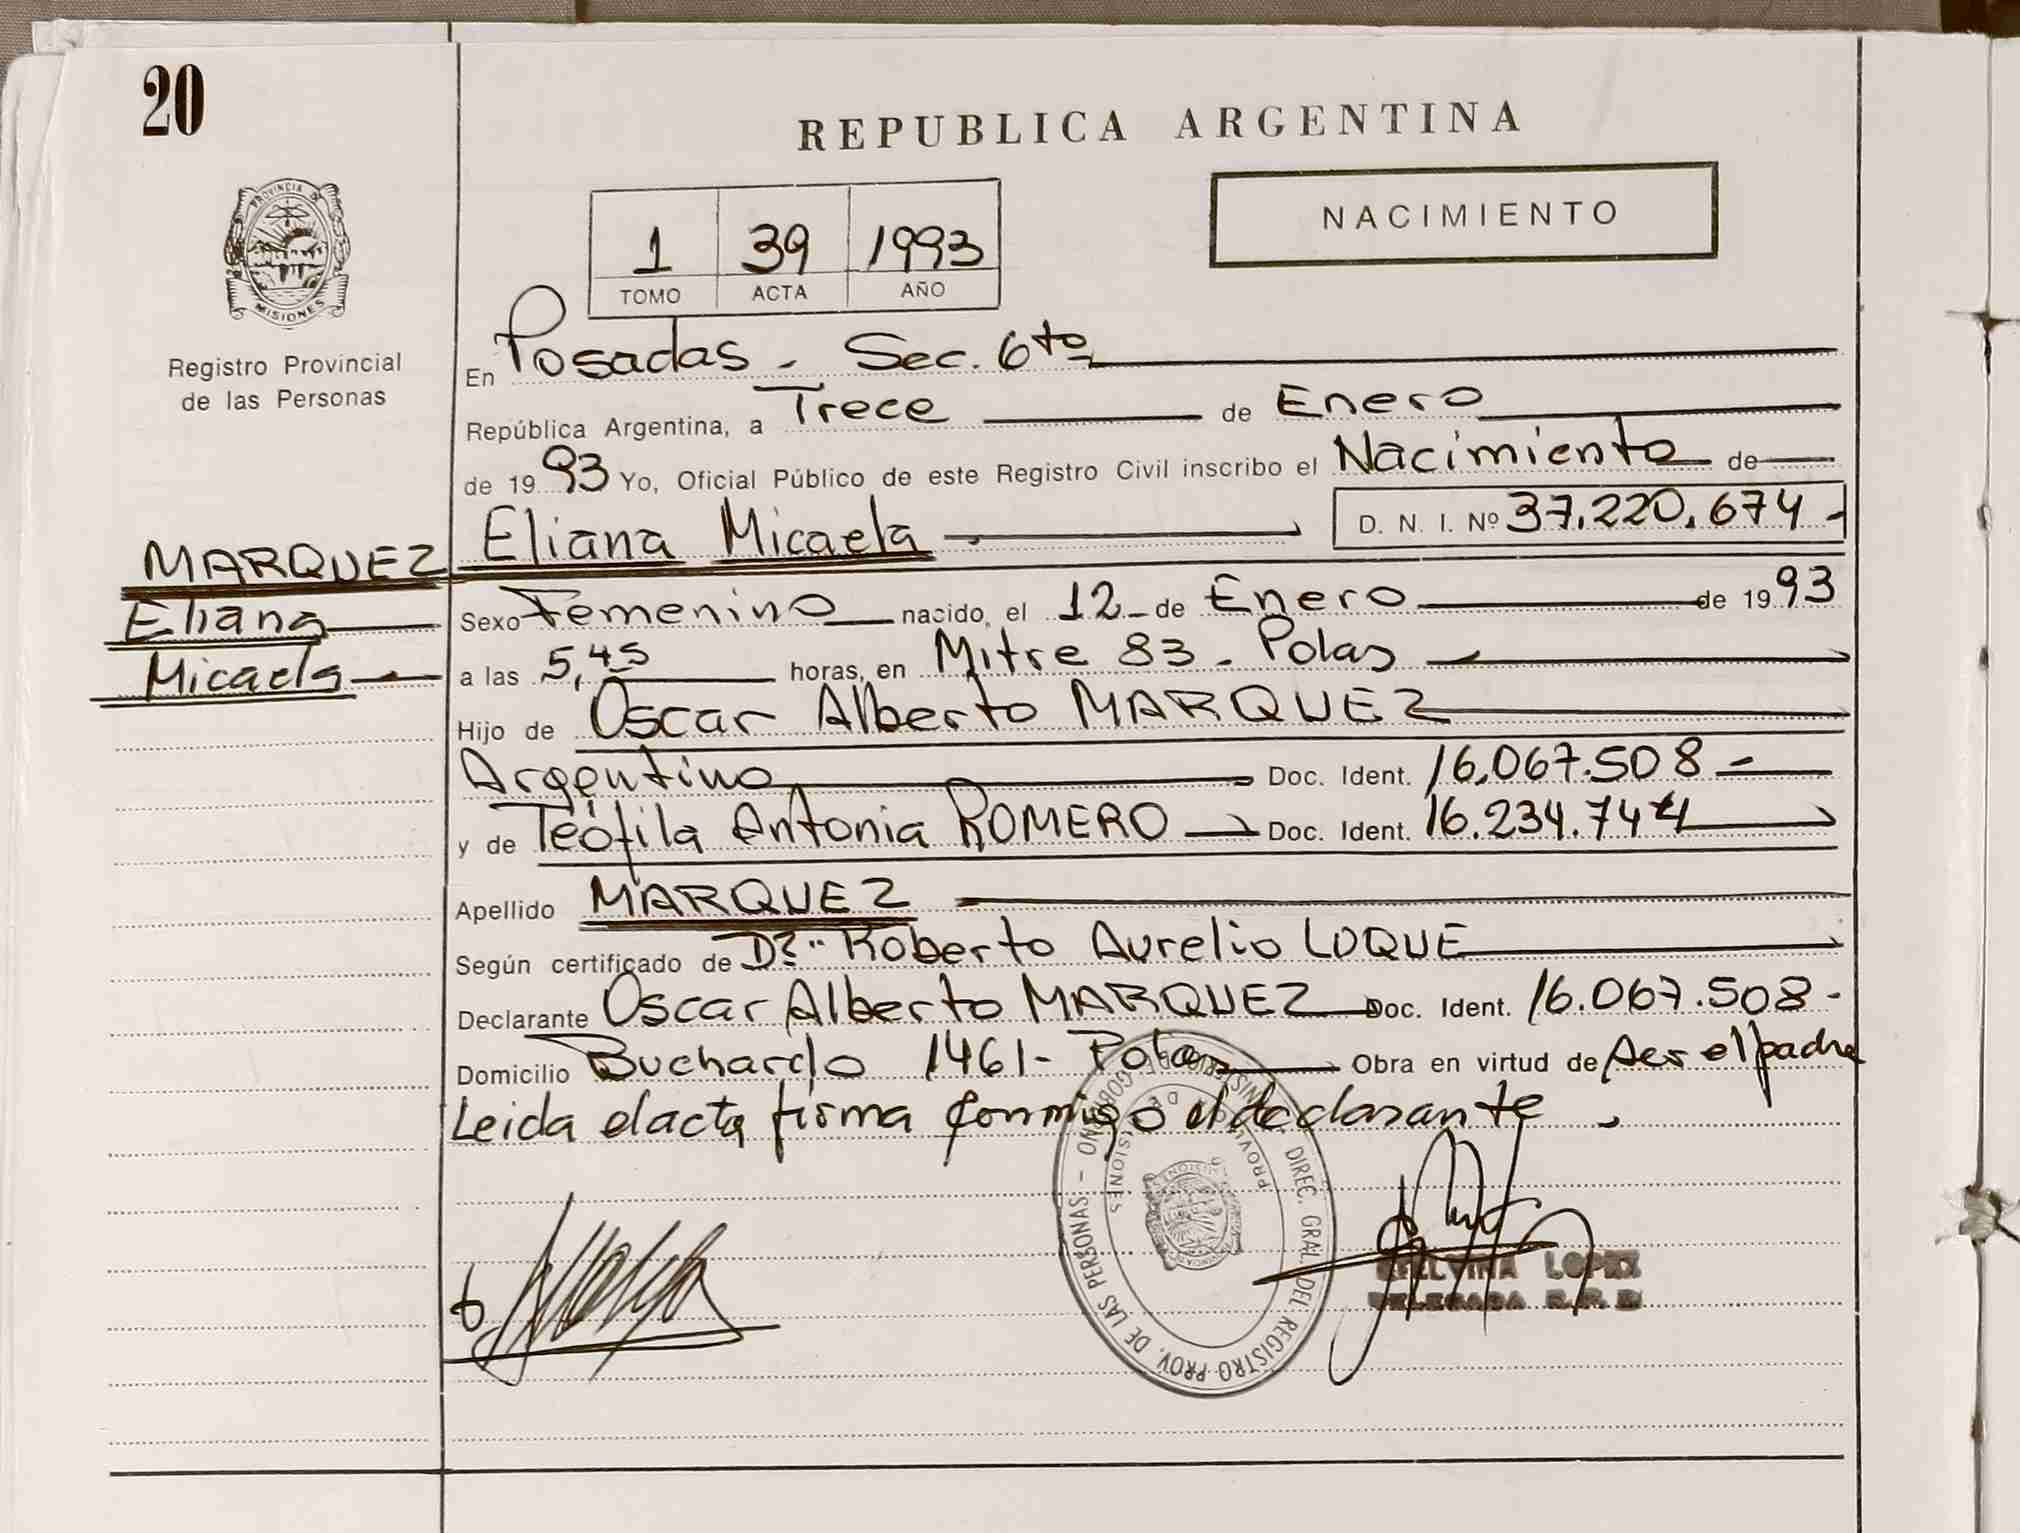 20
REPUBLICA ARGENTINA
NACIMIENTO
1 39 1993
TOMO ACTA AÑO
PROVINCIA DE
MISIONES
Registro Provincial
de las Personas
En Posadas - Sec. 6ta
República Argentina, a Trece de Enero
de 1993 Yo, Oficial Público de este Registro Civil inscribo el Nacimiento de
MARQUEZ
Eliana
Micaela
Eliana Micaela D. N. I. Nº 37.220.674-
Sexo Femenino nacido, el 12 - de Enero de 1993
a las 5,45 horas, en Mitre 83 - Pdas
Hijo de Oscar Alberto MARQUEZ
Argentino Doc. Ident. 16.067.508 -
y de Teófila Antonia ROMERO Doc. Ident. 16.234.744
Apellido MARQUEZ
Según certificado de Dr. Roberto Aurelio LUQUE
Declarante Oscar Alberto MARQUEZ Doc. Ident. 16.067.508 -
Domicilio Buchardo 1461 - Pdas Obra en virtud de ser el padre
Leida el acta firma conmigo el declarante
DIREC. GRAL. DEL REGISTRO PROV. DE LAS PERSONAS - MINISTERIO DE GOBIERNO
PROVINCIA DE MISIONES
LOPEZ
DELEGADA